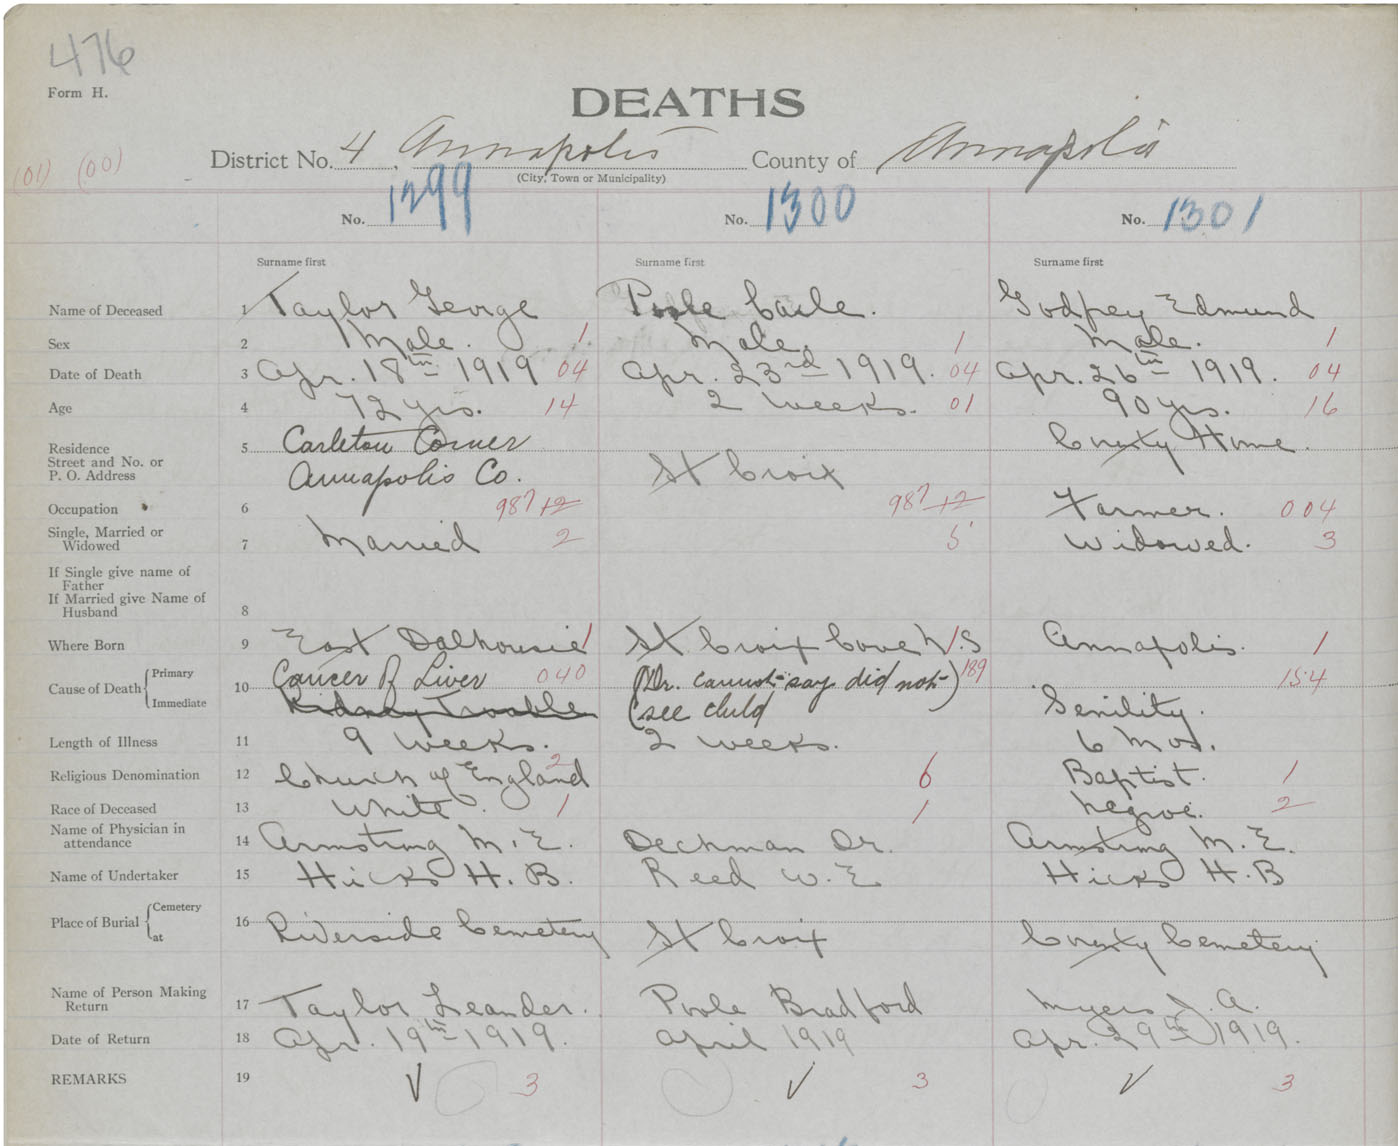 476
Form H.
DEATHS
(01) (00)
District No. 4, Annapolis County of Annapolis
(City, Town or Municipality)
No. 1299 No. 1300 No. 1301
Surname first Surname first Surname first
Name of Deceased 1 Taylor George Poole Carle. Godfrey Edmund
Sex 2 Male. 1 Male. 1 Male. 1
Date of Death 3 Apr. 18th 1919 04 Apr. 23rd 1919. 04 Apr. 26th 1919. 04
Age 4 72 yrs. 14 2 weeks. 01 90 yrs. 16
Residence
Street and No. or
P. O. Address
5 Carleton Corner County Home.
Annapolis Co. St Croix
Occupation 6 987 +2 987 +2 Farmer. 004
Single, Married or
Widowed
7 Married 2 5 Widowed. 3
If Single give name of
Father
If Married give Name of
Husband
8
Where Born 9 East Dalhousie 1 St Croix Cove N.S 1 Annapolis. 1
Cause of Death Primary
Immediate
10 Cancer of Liver 040 (Dr. cannot say did not) 189 154
Kidney Trouble (see child Senility.
Length of Illness 11 9 weeks. 2 weeks. 6 mos.
Religious Denomination 12 Church of England 2 6 Baptist. 1
Race of Deceased 13 White. 1 1 Negroe. 2
Name of Physician in
attendance
14 Armstrong M. E. Dechman Dr. Armstrong M. E.
Name of Undertaker 15 Hicks H. B. Reed W. E Hicks H. B
Place of Burial Cemetery
at
16 Riverside Cemetery St Croix County Cemetery.
Name of Person Making
Return
17 Taylor Leander. Poole Bradford Myers J. A.
Date of Return 18 Apr. 19th 1919. April 1919 Apr. 29th 1919.
REMARKS 19 √ 3 √ 3 √ 3